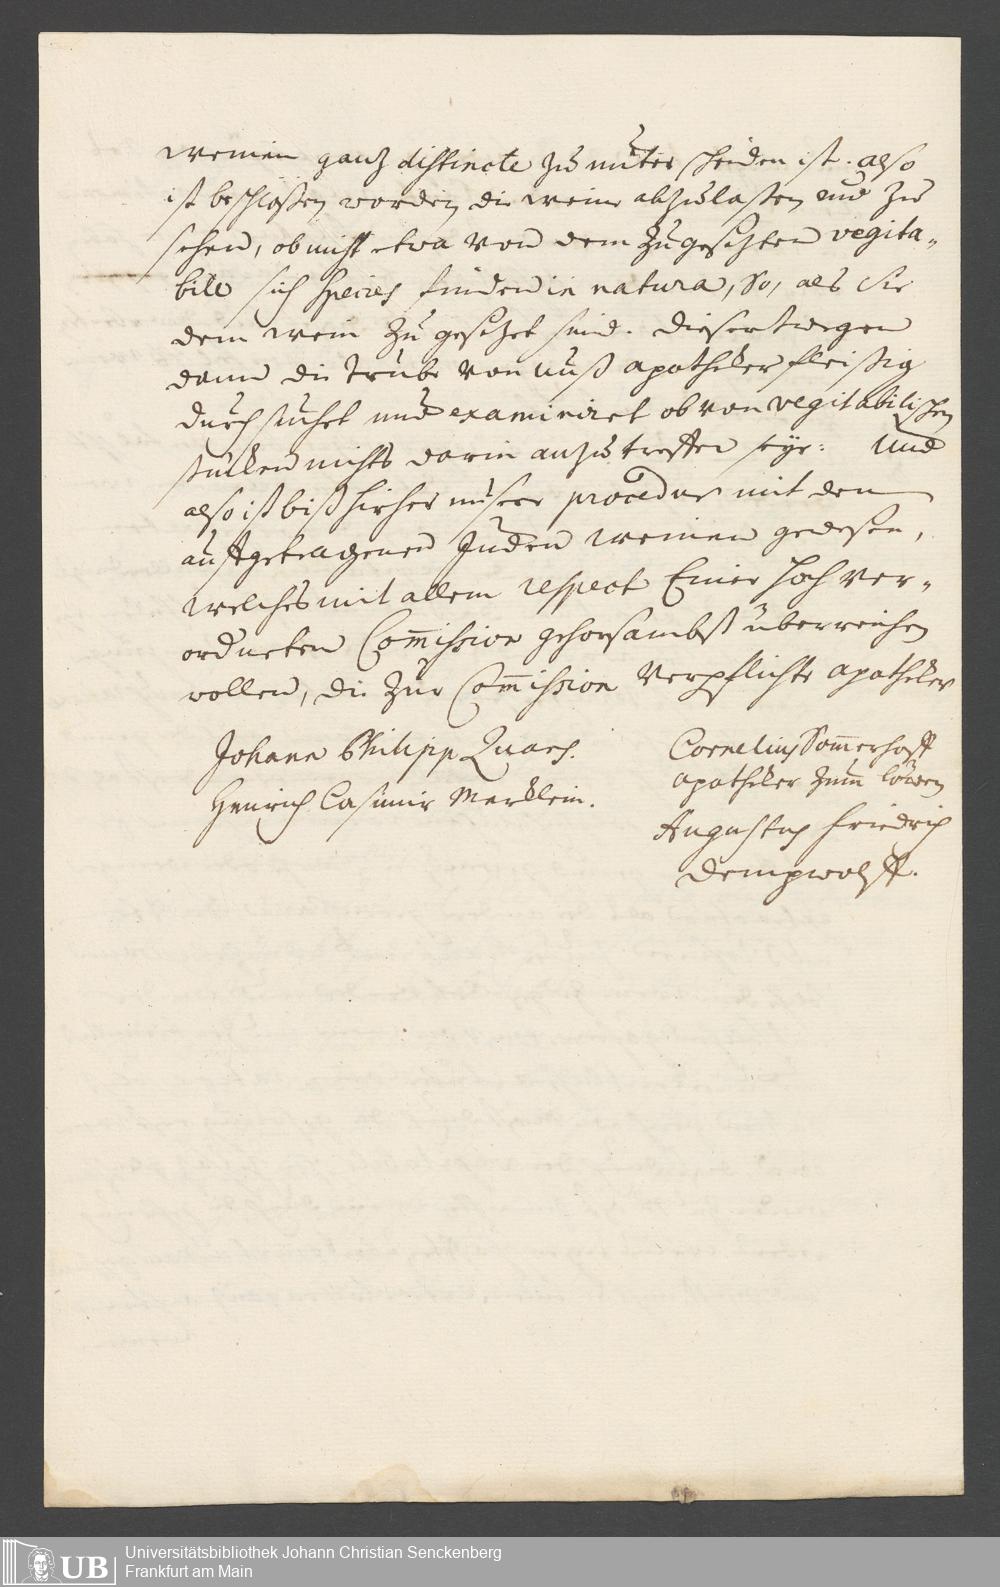 weinen ganz distincte zu unter scheiden ist. also
ist beschloßen worden die weine abzulaßen und zu
sehen, ob nicht etwa von dem zugesezten vegita-
bile sich species finden in natura, so, als sie
dem wein zu gesezet sind. dieser twegen
dann die trübe von unß apotheker fleißig
durch suchet und examiniret ob von vegitabilischen
stucken nichts darin anzu treffen seye: Und
also ist biß hieher unsere procedur mit den
auffgetragenen Juden weinen gewesen,
welches mit allem respect Einer hoch ver-
ordneten Commission gehorsambst überreichen
wollen, die zur Commission verpflichte apotheker
Johann Philipp
Henrich Casimir Marklein.
Cornelius Sommerhoff
apotheker zum löwen
Augustus Friedrich
Dempwolff.
UB
Universitätsbibliothek Johann Christian Senckenberg
Frankfurt am Main